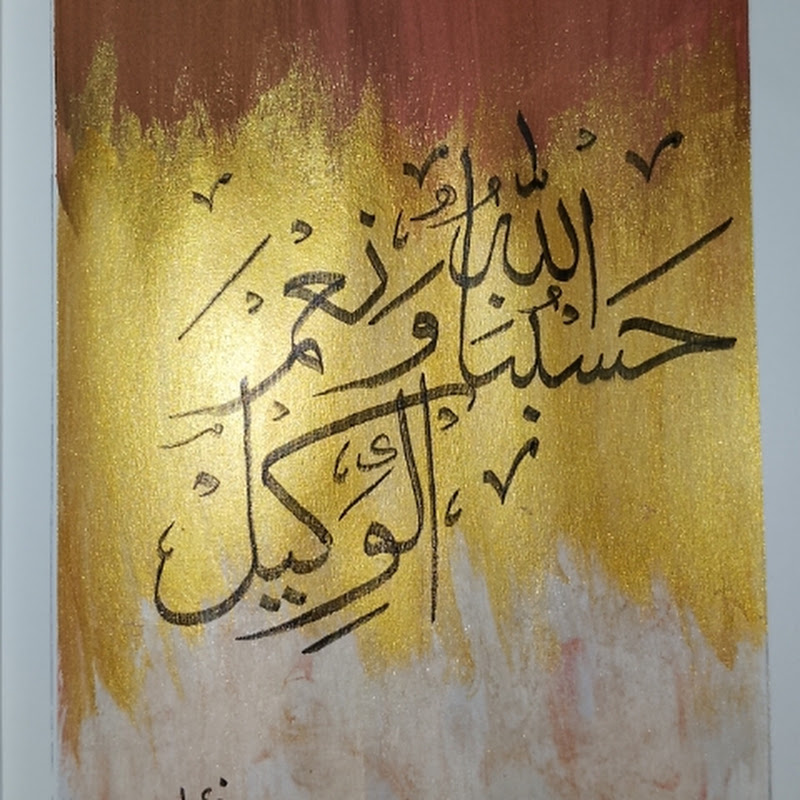 حَسْبُنَا اللهُ وَنِعْمَ
الْوَكِيلُ